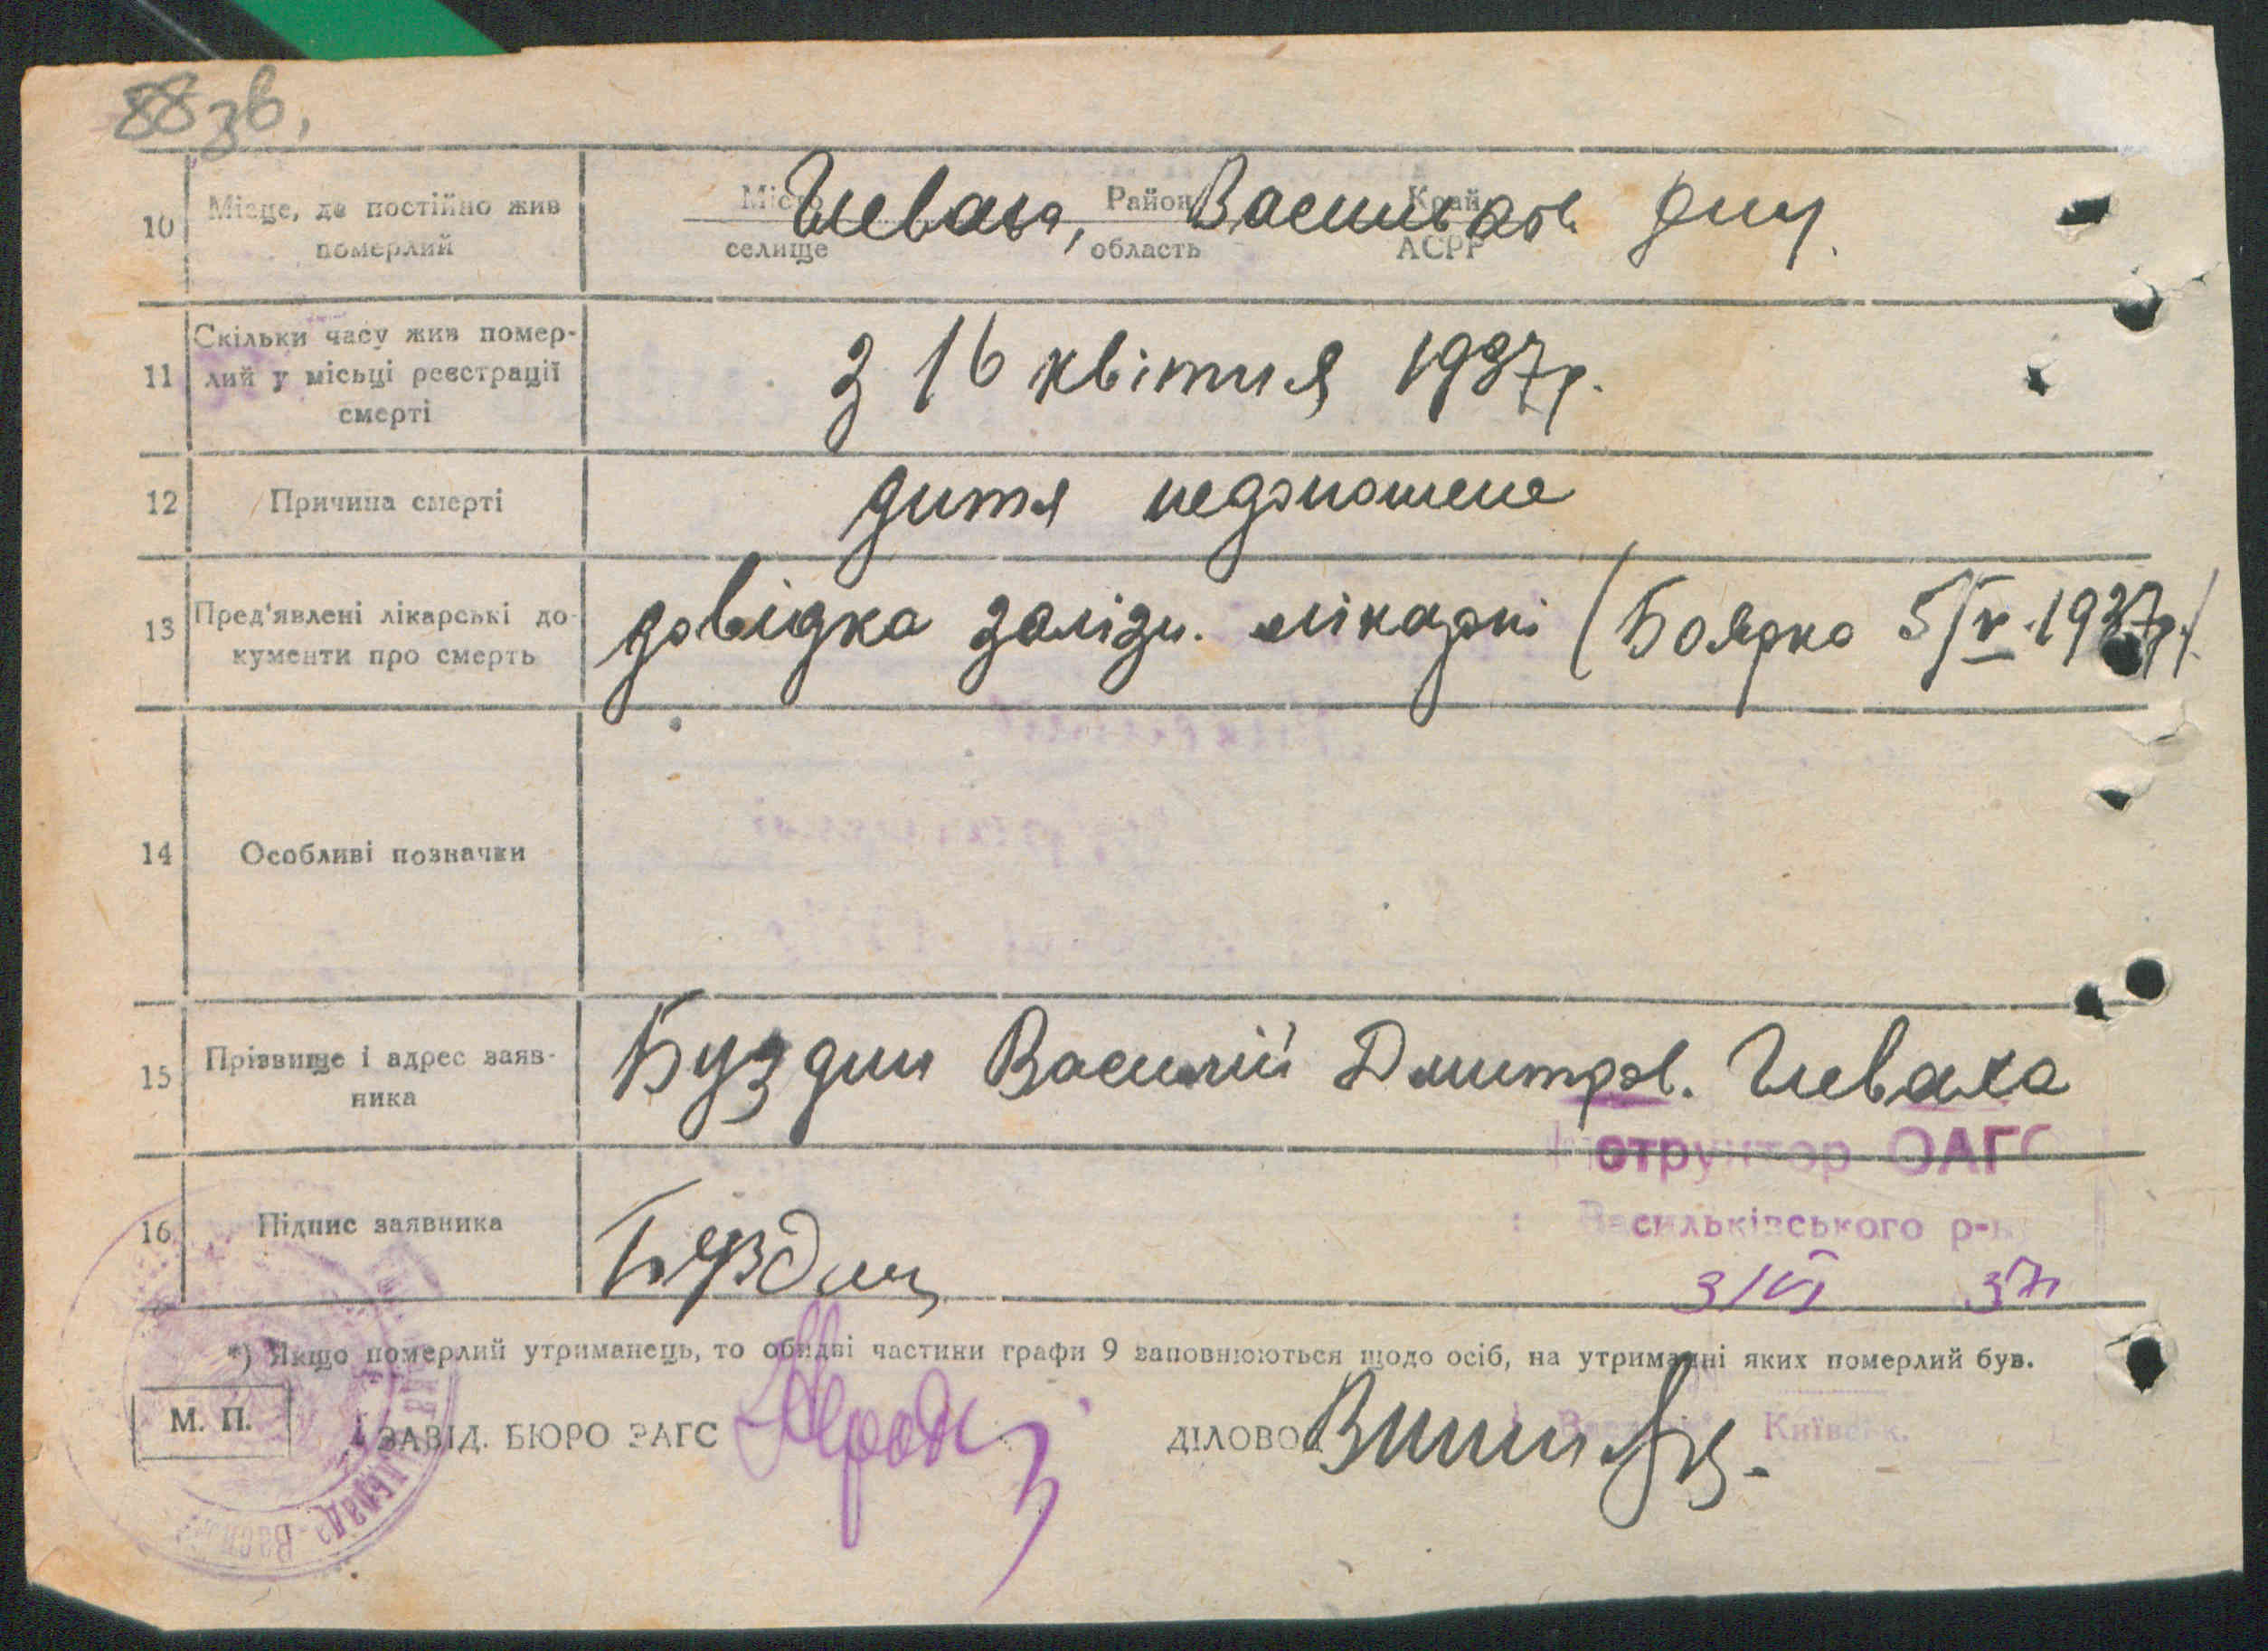 88 зв.
10 Місце, де постійно жив померлий
Місто селище Район область Край АСРР
Глеваха, Васильков.
11 Скільки часу жив помер-
лий у місьці реєстрації
смерті
З 16 квітня 1937 р.
12 Причина смерті
дитя недоношене
13 Пред'явлені лікарські до-
кументи про смерть
довідка залізн. лікарні (Боярка 5/V. 1937 р.)
14 Особливі позначки
15 Прізвище і адрес заяв-
ника
Буздин Василій Дмитров. Глеваха
Інструктор ОАГС
Васильківського р-ну
16 Підпис заявника
Буздин
3/VI 37
*) Якщо померлий утриманець, то обидві частини графи 9 заповнюються щодо осіб, на утриманні яких померлий був.
М. П.
ЗАВІД. БЮРО ЗАГС
ДІЛОВОД
Київськ.